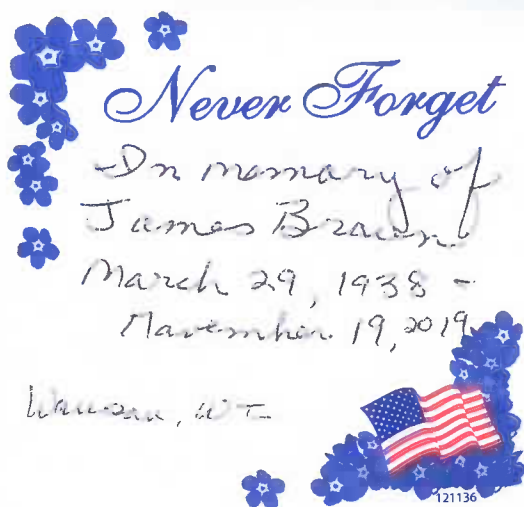 Never Forget
In memory of
James Brown
March 29, 1938 -
November 19, 2019
Wausau, WI
121136